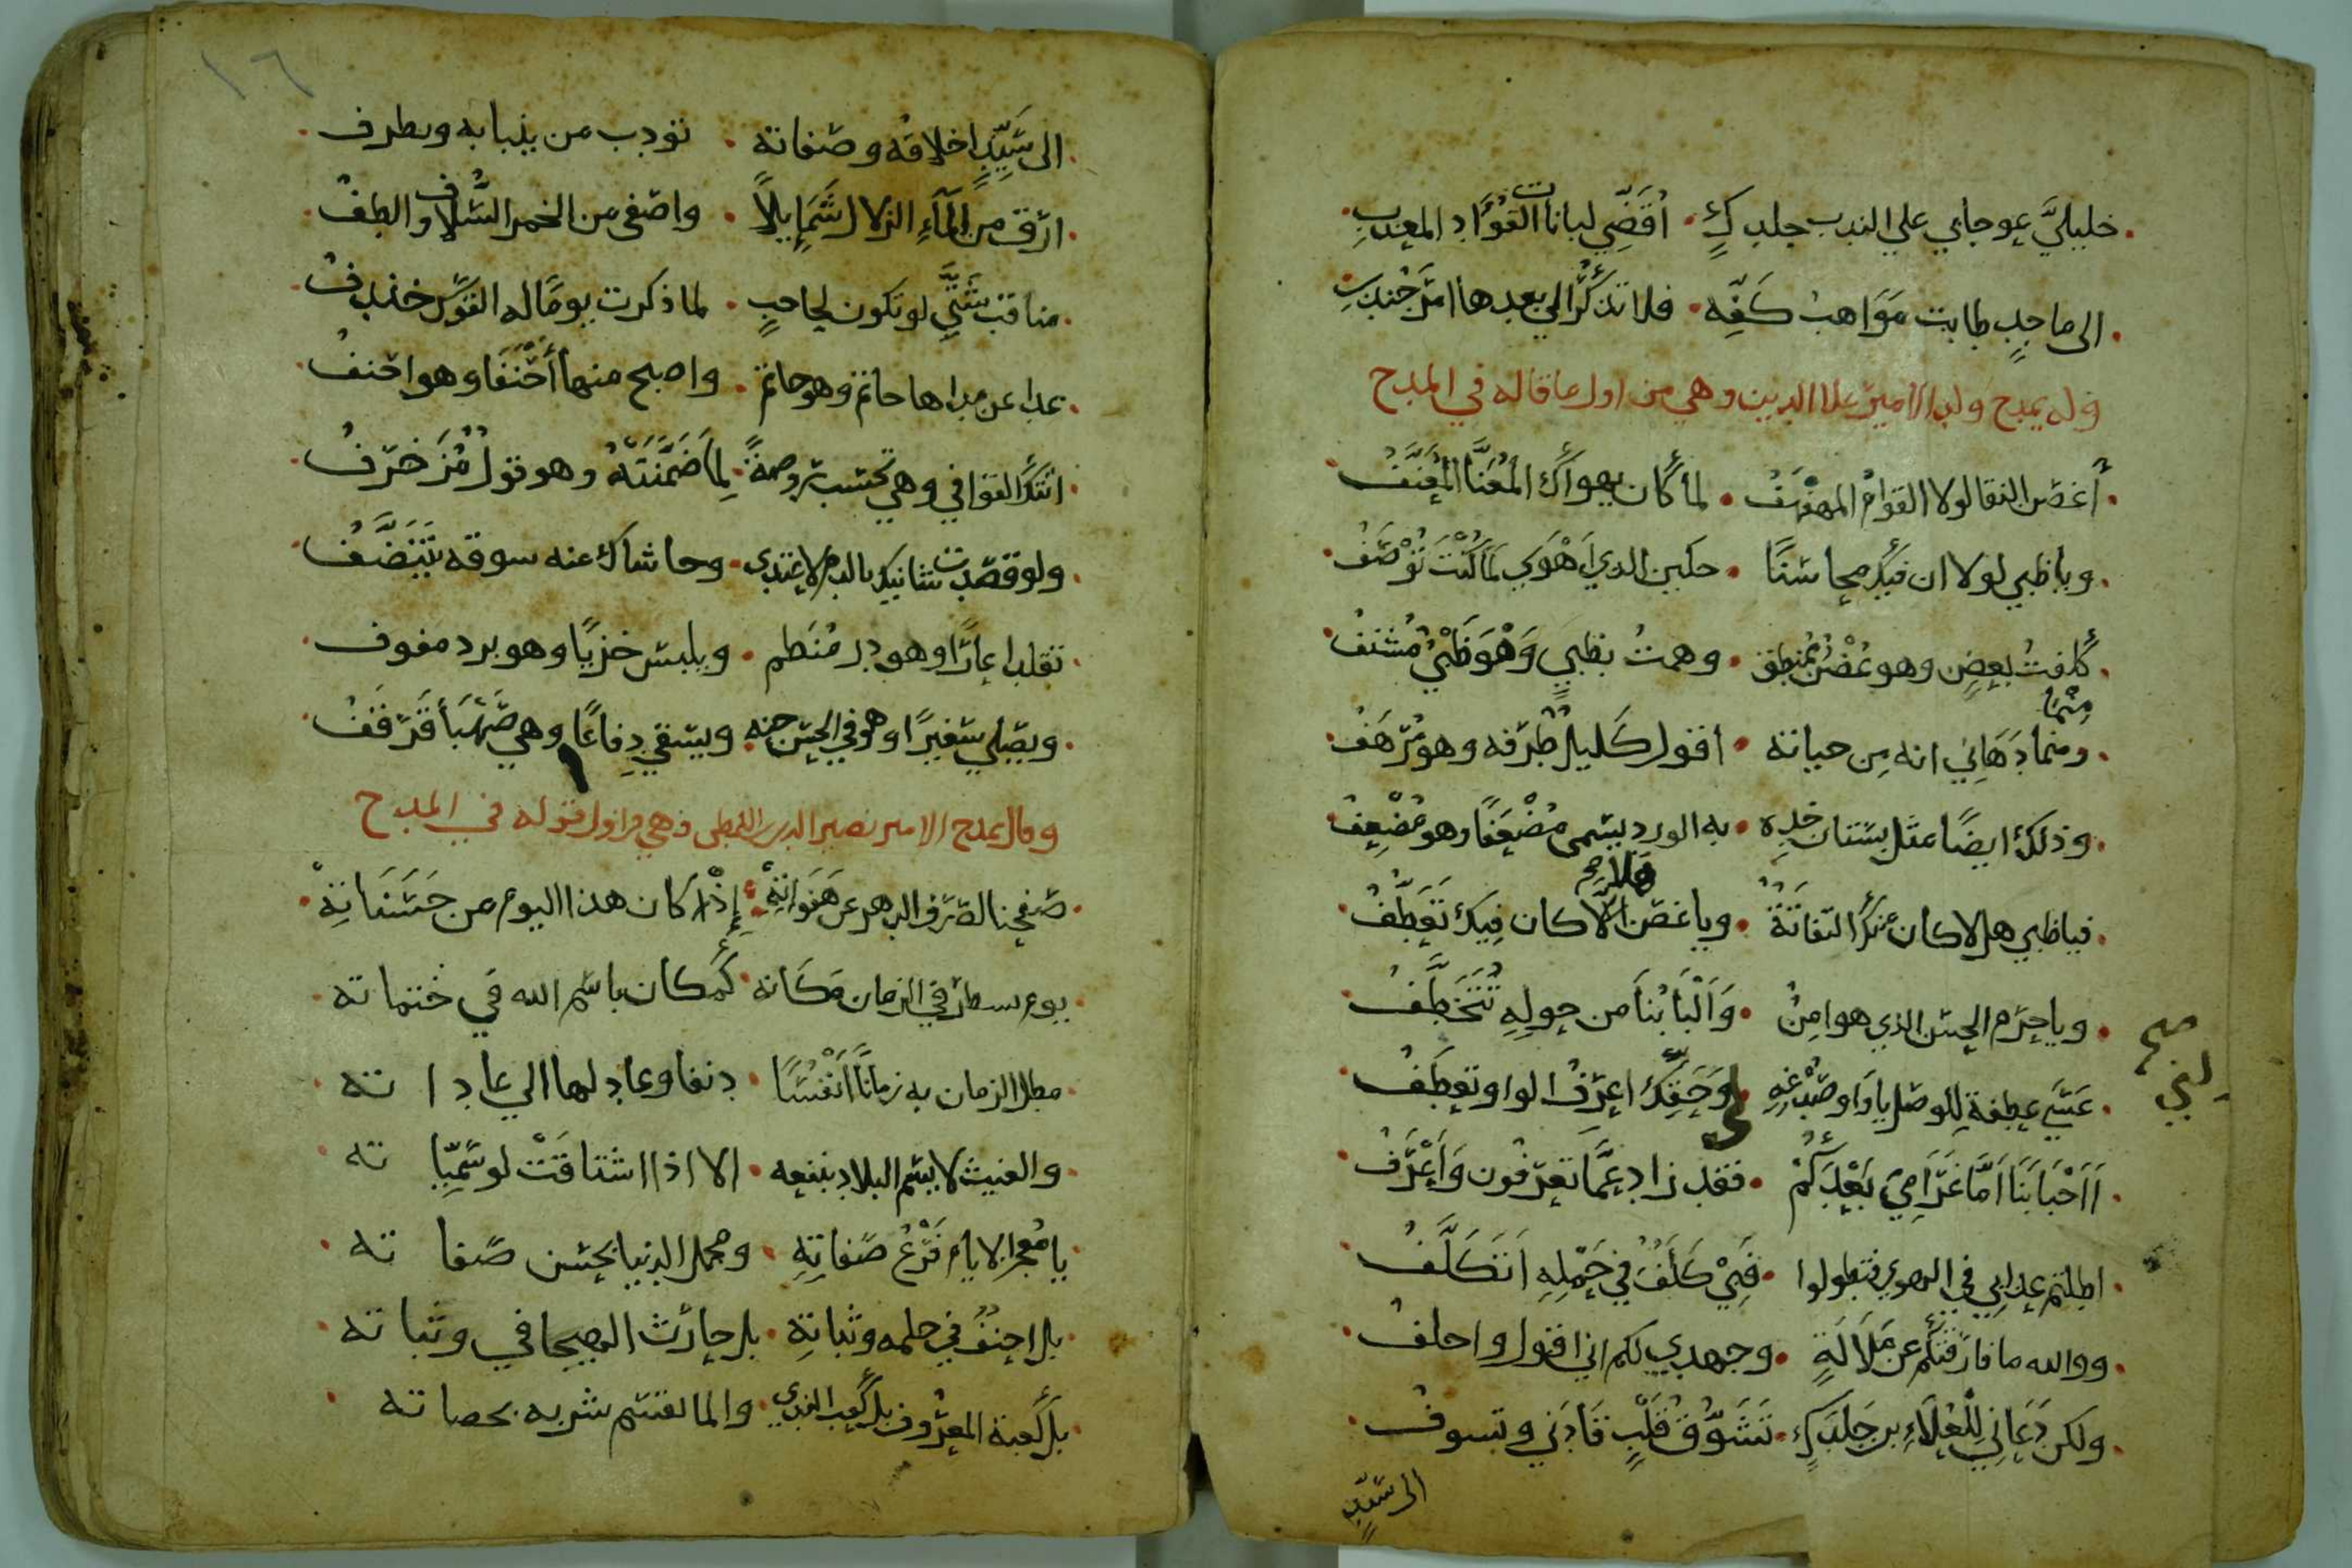 خليليَّ عوجا بي علي الندب جلدكٍ · أُقَضِّي لبانات الفؤاد المعذبِ
الى ماجدٍ طابت مَوَاهبُ كَفِّه · فلا تذكُرَا لي بعدها امَّ جُندبِ
وله يمدح ولد الامير علا الدين وهي من اول ما قاله في المدح
أغصن النقا لولا القوامُ المهفهفُ · لما كان يهواك المُعَنَّا المُعَنَّفُ
ويا ظبي لولا ان فيكَ محاسنًا · حكين الذي اَهْوَي لَمَا كُنْتَ تُوْصَفُ
كَلفتُ بغصنٍ وهو غُصْنٌ مُمنطق · وهمتُ بظبيٍ وَهْوَ ظَبْيٌ مُشنفُ
ومما دَهَاني انه مِن حيائه · اقول كَليلٌ طَرْفه وهو مُرْهَفُ
مِمْا
وذلك ايضًا مثل بستان خدِه · به الورد يسمى مُضْعَفًا وهو مُضْعِفُ
فيا ظبي هلا كان منكَ التفاتَةٌ · ويا غصن هلا كان فِيكَ تَعَطُّفُ
ويا حرَم الحسن الذي هو امِنٌ · وَاَلْبَابُنا من حولِهِ تُتَخَطَّفُ
عَسَي عطفة لِلوصل يا وَاو صُدْغِهِ · وَحَقِّكَ اعرِفُ الواو تعطفُ
صح
اَاَحْبَابَنَا اَمَّا غَرَامِيَ بَعْدَكُمْ · فقد زاد عَمَّا تعرفون وَاَعْرِفُ
اطلتم عذابي في الهوي فتطولوا · فَبِيْ كَلَفٌ فِي حَمْلِهِ اَتَكَلَّفُ
ووالله ما فارَقتُكُم عن مَلَالَةٍ · وجهدي لكم اني اقول واحلفُ
ولكن دَعَانِي لِلْعُلَاءِ بن جَلدَكٍ · تَشَوُّقُ قَلْبٍ قَادَنِي وتسوفُ
الى سَيِّدٍ
١٦
الى سَيِّدٍ اخلاقُه وصفاته · تؤدب من ينبا به ويطرف
ارَق مِن اَلْمَآءِ الزلال شَمَايلاً · واصفى من الخمر السُّلاف والطفُ
مناقبُ شَتَّي لو تكون لحاجبٍ · لما ذكرت يومًا له القوسَ خندفُ
غدا عن مداها حاتم وهو حاتم · واصبح منها أَحْنَفَا وهو احنفُ
اتتكَ القوافي وهي تحسب روضةً · لِمَا ضَمَّنَتْهُ وهو قول مُزَخْرَفُ
ولو قصدت شانيك بالذم لاغتدى · وحاشاك عنه سوقه يَتَنَصَّفُ
تقلد اعارًا وهو در مُنَظم · ويلبس خزيًا وهو برد مفوف
ويصلي سَعِيرًا وهو في الحسن جنه · ويسقي دِفاعًا وهي صَهْبَأ قَرْقَفُ
وقال يمدح الامير نصير الدين اللمطى وهي من اول قوله في المدح
صفحنا لصرف الدهر عن هَفَوَاتِهْ · إِذْ كان هذا اليوم من حَسَنَاتِهْ
يومٍ يسطر في الزمان مَكَانه · كَمَكان باسم الله في خَتماته
مطل الزمان به زمانًا اَنْفُسًا · دنفا وعاد لها الي عاداته
والغيث لا يسم البلاد بنفعه · الا اذا اشتاقَتْ لوسْمِيّاته
يا مُعجز الايام قَرْعُ صَفاتِهِ · ومجمل الدنيا بحسن صفاته
بل احنفٌ في حلمه وثباتِهِ · بل حارث الهيجا في وثباته
بل كعبة المعروف بل كعب الندى · والما يقتسم شربه بحصاته